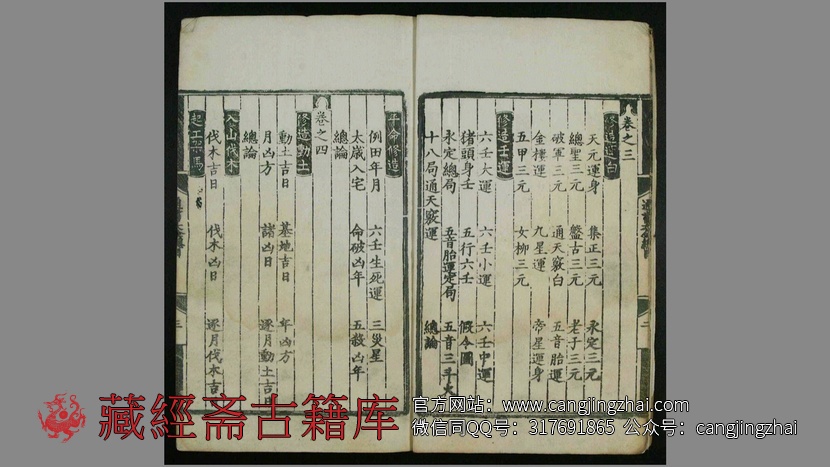 卷之三
修造
天元運身 集正三元 永定三元
總聖三元 盤古三元 老子三元
破軍三元 通天竅白 五音胎運
金樓運 九星運 帝星運身
五甲三元 女柳三元
修造壬運
六壬大運 六壬小運 六壬中運
猪頭身壬 五行六壬 假令圖
永定總局 五音胎運定局 五音三
十八局通天竅運 總論
命修造
例田年月 六壬生死運 三災星
太歲入宅 命破凶年 五殺凶年
總論
卷之四
修造動土
動土吉日 基地吉日 年凶方
月凶方 諸凶日 逐月動土吉日
總論
入山伐木
伐木吉日 伐木凶日 逐月伐木吉
起工馬
二
三
藏經斋古籍库
官方网站：www.cangjingzhai.com
微信同QQ号：317691865 公众号：cangjingzhai